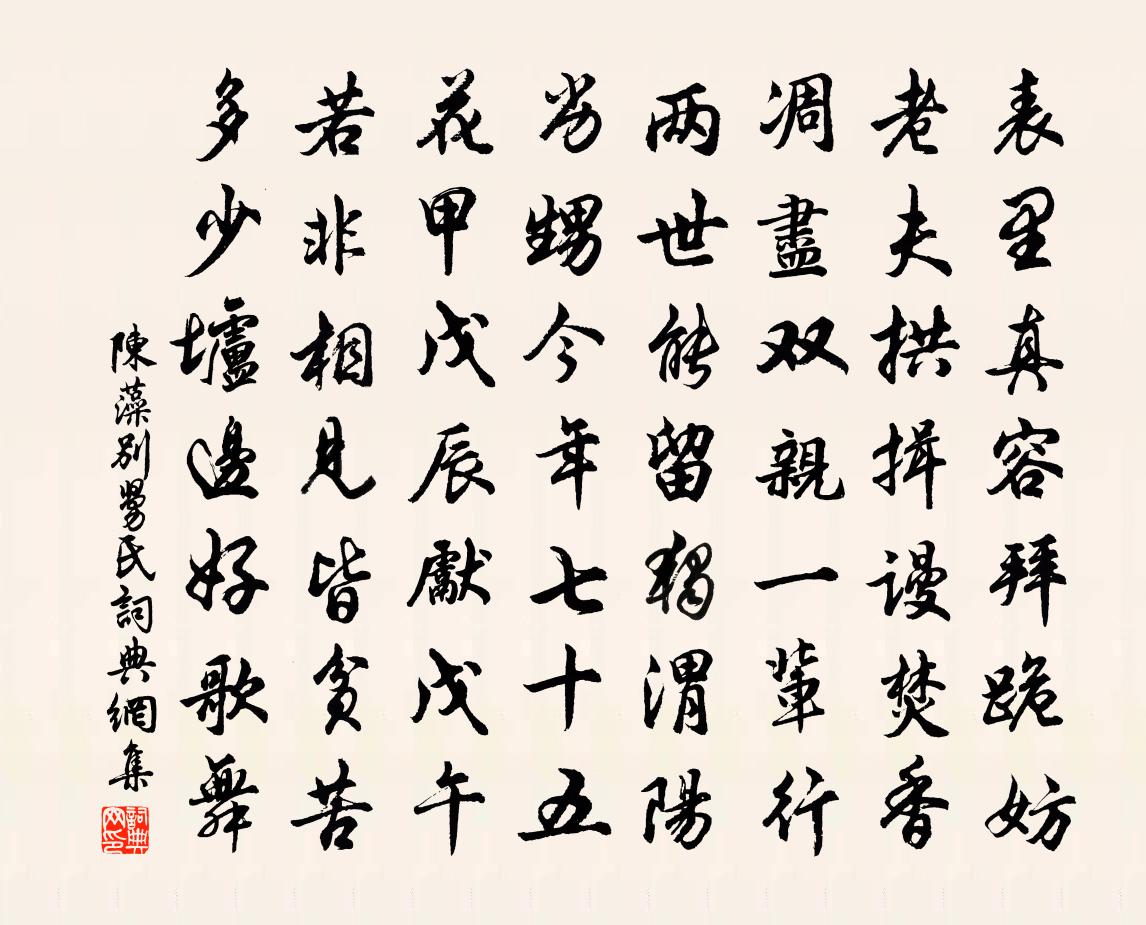 表里真容拜跪妨
老夫拱揖谩焚香
凋盡双親一輩行
两世能留獨渭陽
舅甥今年七十五
花甲戊辰獻戊午
若非相見皆貧苦
多少壚邊好歌舞
陳藻别舅氏詞典網集